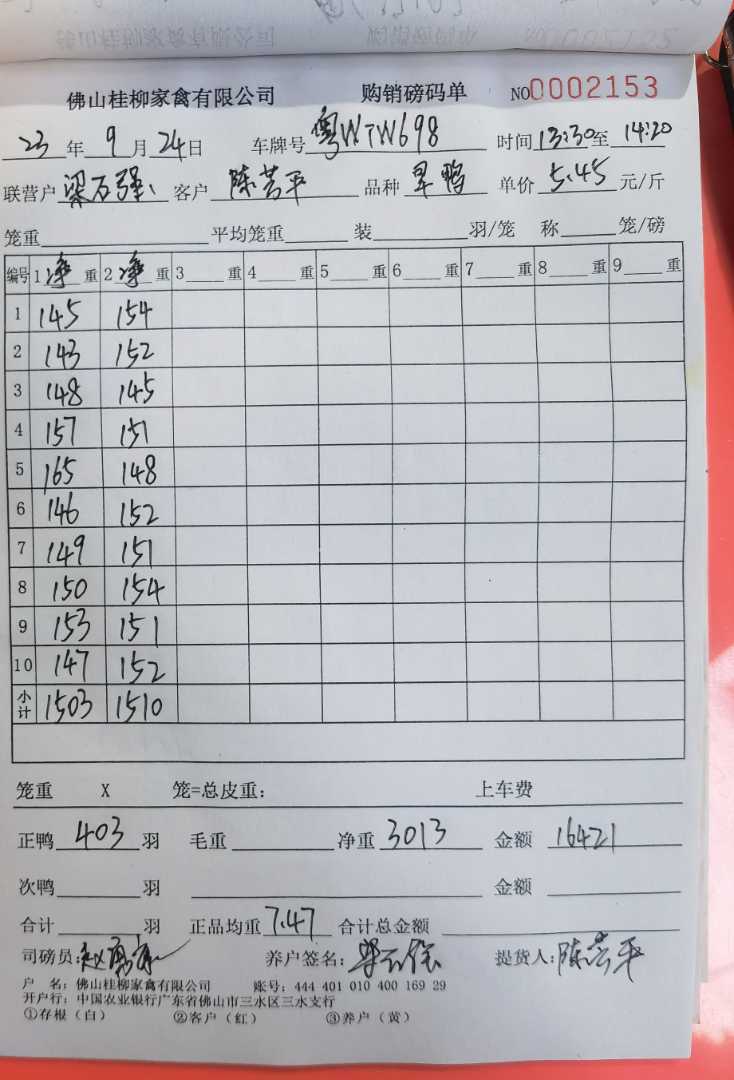 佛山桂柳家禽有限公司 购销磅码单 NO0002153
23年9月24日 车牌号粤WTW698 时间13:30至14:20
联营户梁石强 客户陈芸平 品种旱鸭 单价5.45元/斤
笼重 平均笼重 装 羽/笼 称 笼/磅
编号 1净重 2净重 3 重 4 重 5 重 6 重 7 重 8 重 9 重
1 145 154
2 143 152
3 148 145
4 157 151
5 165 148
6 146 152
7 149 151
8 150 154
9 153 151
10 147 152
小计 1503 1510
笼重 X 笼=总皮重： 上车费
正鸭403羽 毛重 净重3013 金额16421
次鸭 羽 金额
合计 羽 正品均重7.47 合计总金额
司磅员： 养户签名： 提货人：陈芸平
户 名：佛山桂柳家禽有限公司 账号：444 401 010 400 169 29
开户行：中国农业银行广东省佛山市三水区三水支行
①存根（白） ②客户（红） ③养户（黄）